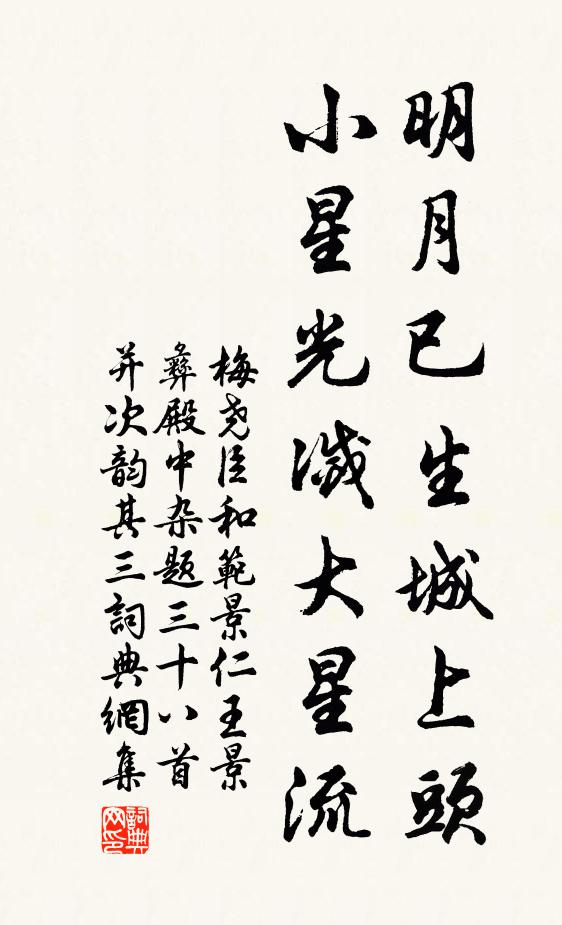 明月已生城上頭
小星光滅大星流
梅尧臣和範景仁王景
彝殿中杂题三十八首
并次韵其三詞典網集
詞典网印